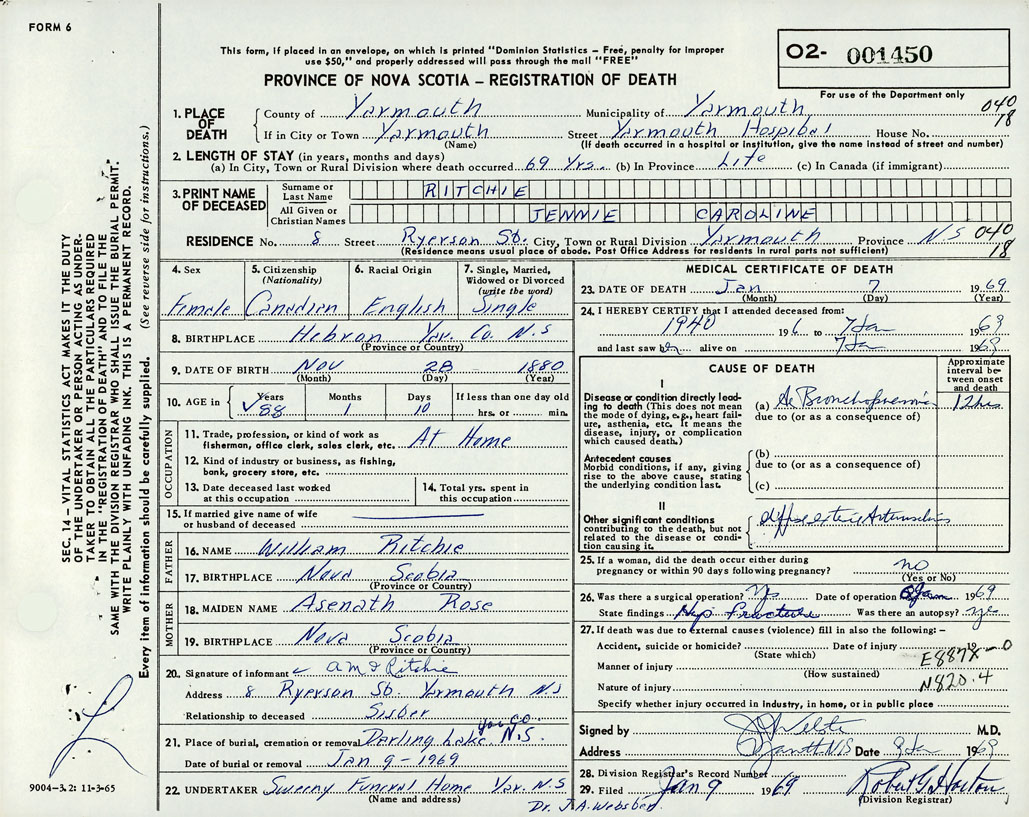 FORM 6
This form, if placed in an envelope, on which is printed "Dominion Statistics – Free, penalty for improper
use $50," and properly addressed will pass through the mail "FREE"
O2- 001450
PROVINCE OF NOVA SCOTIA – REGISTRATION OF DEATH
For use of the Department only
1. PLACE OF DEATH County of Yarmouth Municipality of Yarmouth 040
If in City or Town Yarmouth Street Yarmouth Hospital House No. 18
(Name) (If death occurred in a hospital or institution, give the name instead of street and number)
2. LENGTH OF STAY (in years, months and days)
(a) In City, Town or Rural Division where death occurred 69 Yrs. (b) In Province Life (c) In Canada (if immigrant)
3. PRINT NAME OF DECEASED Surname or Last Name RITCHIE
All Given or Christian Names JENNIE CAROLINE
RESIDENCE No. 8 Street Ryerson St. City, Town or Rural Division Yarmouth Province N.S 040
(Residence means usual place of abode. Post Office Address for residents in rural parts not sufficient) 18
4. Sex Female
5. Citizenship (Nationality) Canadian
6. Racial Origin English
7. Single, Married, Widowed or Divorced (write the word) Single
8. BIRTHPLACE Hebron Yar. Co. N.S
(Province or Country)
9. DATE OF BIRTH Nov 28 1880
(Month) (Day) (Year)
10. AGE in Years 88 Months 1 Days 10 If less than one day old
hrs. or min.
OCCUPATION
11. Trade, profession, or kind of work as
fisherman, office clerk, sales clerk, etc. At Home
12. Kind of industry or business, as fishing,
bank, grocery store, etc.
13. Date deceased last worked
at this occupation
14. Total yrs. spent in
this occupation
15. If married give name of wife
or husband of deceased
FATHER
16. NAME William Ritchie
17. BIRTHPLACE Nova Scotia
(Province or Country)
MOTHER
18. MAIDEN NAME Asenath Rose
19. BIRTHPLACE Nova Scotia
(Province or Country)
20. Signature of informant Ritchie
Address 8 Ryerson St. Yarmouth N.S
Relationship to deceased Sister
Yar Co.
21. Place of burial, cremation or removal Darling Lake N.S.
Date of burial or removal Jan 9 - 1969
22. UNDERTAKER Sweeny Funeral Home Yar. N.S
(Name and address)
Dr. J.A. Webster
MEDICAL CERTIFICATE OF DEATH
23. DATE OF DEATH Jan 7 1969
(Month) (Day) (Year)
24. I HEREBY CERTIFY that I attended deceased from:
1940 19 to 7 Jan 1969
and last saw alive on 7 Jan 1969
CAUSE OF DEATH
Approximate interval between onset and death
I
Disease or condition directly leading
to death (This does not
mean the mode of dying, e.g., heart failure,
asthenia, etc. It means the
disease, injury, or complication
which caused death.)
(a) Bronchopneumonia 12 hrs
due to (or as a consequence of)
Antecedent causes
Morbid conditions, if any, giving
rise to the above cause, stating
the underlying condition last.
(b)
due to (or as a consequence of)
(c)
II
Other significant conditions
contributing to the death, but not
related to the disease or condition
causing it.
25. If a woman, did the death occur either during
pregnancy or within 90 days following pregnancy? no
(Yes or No)
26. Was there a surgical operation? Yes Date of operation Jan 1969
State findings Hip Fracture Was there an autopsy? yes
27. If death was due to external causes (violence) fill in also the following: –
Accident, suicide or homicide? Date of injury 19
(State which) E887X – 0
Manner of injury
(How sustained) N820.4
Nature of injury
Specify whether injury occurred in industry, in home, or in public place
Signed by M.D.
Address Date 9 Jan 1969
28. Division Registrar's Record Number
29. Filed Jan 9 1969 Robert G. Horton
(Division Registrar)
SEC. 14 – VITAL STATISTICS ACT MAKES IT THE DUTY
OF THE UNDERTAKER OR PERSON ACTING AS UNDER-
TAKER TO OBTAIN ALL THE PARTICULARS REQUIRED
IN THE "REGISTRATION OF DEATH" AND TO FILE THE
SAME WITH THE DIVISION REGISTRAR WHO SHALL ISSUE THE BURIAL PERMIT.
WRITE PLAINLY WITH UNFADING INK. THIS IS A PERMANENT RECORD.
Every item of information should be carefully supplied. (See reverse side for instructions.)
9004-3.2: 11-3-65